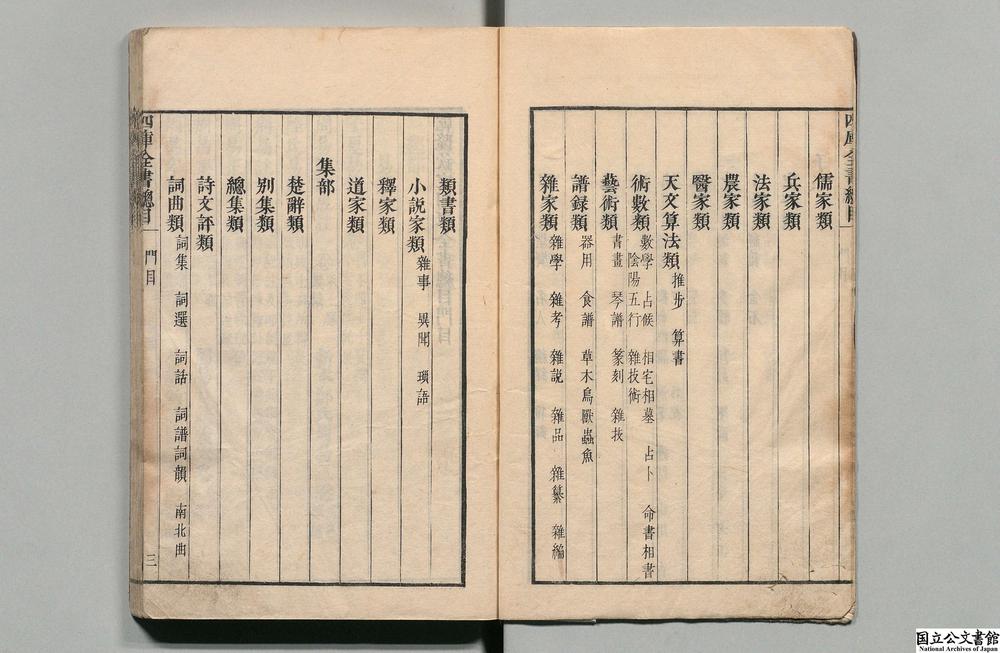 四庫全書總目
儒家類
兵家類
法家類
農家類
醫家類
天文算法類 推步 算書
術數類 數學 占候 相宅相墓 占卜 命書相書
陰陽五行 雜技術
藝術類 書畫 琴譜 篆刻 雜技
譜録類 器用 食譜 草木鳥獸蟲魚
雜家類 雜學 雜考 雜説 雜品 雜纂 雜編
類書類
小説家類 雜事 異聞 瑣語
釋家類
道家類
集部
楚辭類
别集類
總集類
詩文評類
詞曲類 詞集 詞選 詞話 詞譜詞韻 南北曲
四庫全書總目 門目 三
国立公文書館
National Archives of Japan